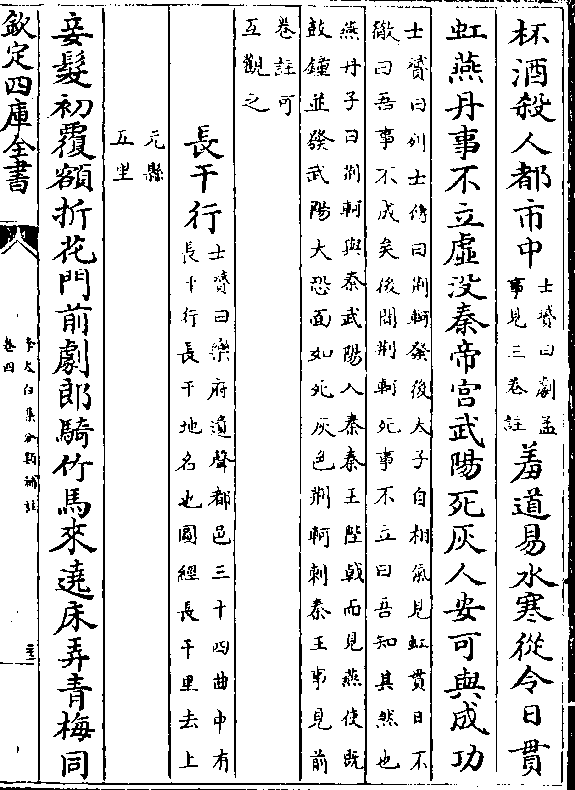 杯酒殺人都市中士贇曰劇孟事見三卷註羞道易水寒從令日貫
虹燕丹事不立虛没秦帝宫武陽死灰人安可與成功
士贇曰列士傳曰荆軻發後太子自相氣見虹貫日不
徹曰吾事不成矣後聞荆軻死事不立曰吾知其然也
燕丹子曰荆軻與秦武陽入秦秦王陛戟而見燕使既
鼓鐘並發武陽大恐面如死灰色荆軻刺秦王事見前
卷註可
互觀之
長干行士贇曰樂府遺聲都邑三十四曲中有長干行長干地名也圖經長干里去上
元縣
五里
妾髮初覆額折花門前劇郎騎竹馬來遶床弄青梅同
欽定四庫全書
李太白集分類補註
卷四